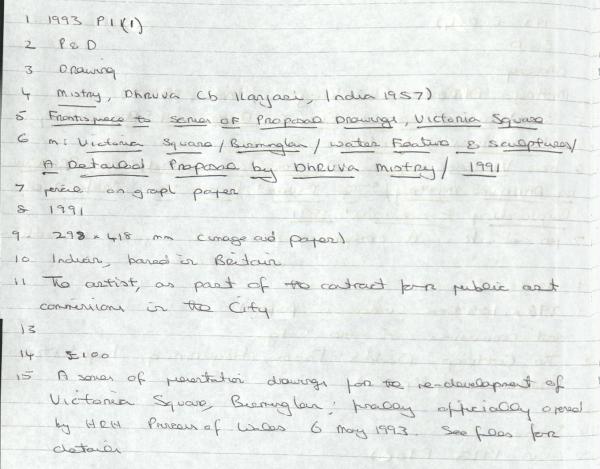 1 1993 P11(1)
2 P&D
3 Drawing
4 Mistry, Dhruva (b Kanjari, India 1957)
5 Frontispiece to series of Proposal Drawings, Victoria Square
6 m: Victoria Square/Birmingham/Water Feature & sculptures/
A Detailed Proposal by Dhruva Mistry/1991
7 pencil on graph paper
8 1991
9. 298 x 418 mm (image and paper)
10 Indian, based in Britain
11 The artist, as part of the contract for public art
commissions in the City
13
14 £100
15 A series of presentation drawings for the re-development of
Victoria Square, Birmingham; finally officially opened
by HRH Princess of Wales 6 May 1993. See files for
details